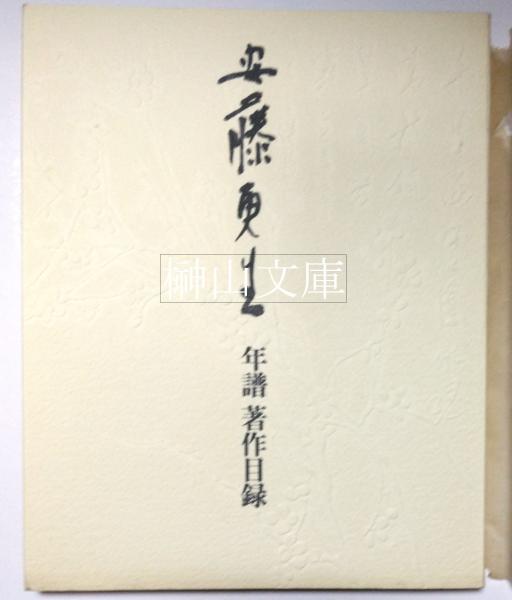 安藤更生
年譜 著作目録
榊山文庫